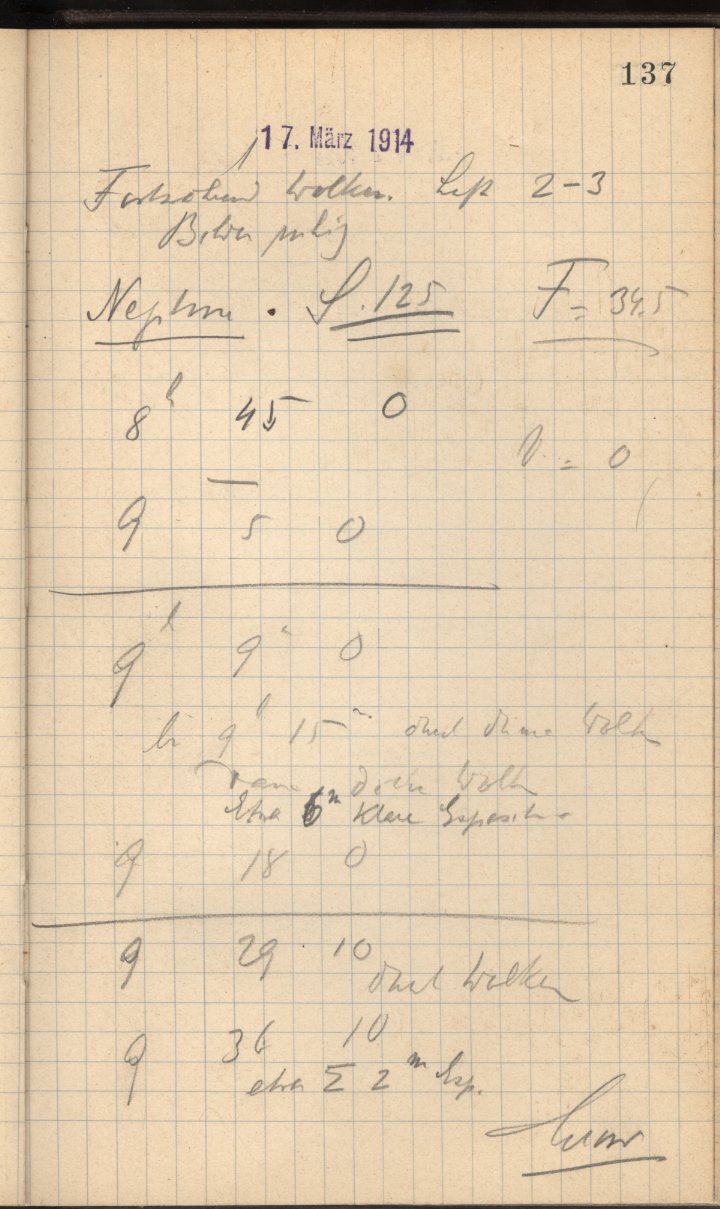 137
17. März 1914
Fortwährend Wolken. Luft 2-3
Bilder ruhig
Neptun . S. 125 F = 34.5
8h 45 0
= 0
9 5 0
9h 9m 0
9h 15m durch dünne Wolken
dann dicke Wolken
Etwa 6m klare Exposition
9 18 0
9 29 10
durch Wolken
9 36 10
etwa Σ 2m Exp.